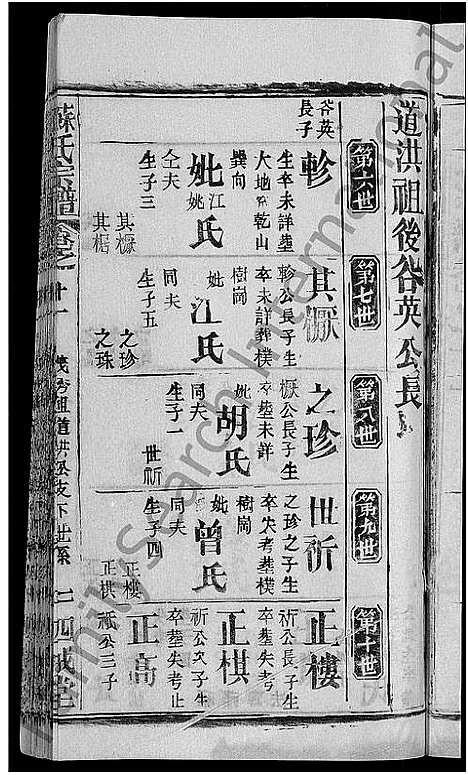 道洪祖後谷英公長
第六世
第七世
第八世
第九世
第十世
谷英
長子
軫
生卒未詳塟
大地㘴乾山
巽向
妣江氏
姚
仝夫
生子三
其橛
其楛
其橛
軫公長子生
卒未詳葬樸
樹崗
妣江氏
同夫
生子五
之珍
之珠
之珍
橛公長子生
卒塟未詳
妣胡氏
同夫
生子一
世祈
世祈
之珍之子生
卒失考塟樸
樹崗
妣曾氏
同夫
生子四
正樓
正棋
正樓
祈公長子生
卒塟失考
正棋
祈公次子生
卒塟失考止
正高
祇公三子
蘇氏宗譜
卷之十一
茂秀祖道洪公支下世系
一
四誠堂
Family Search International